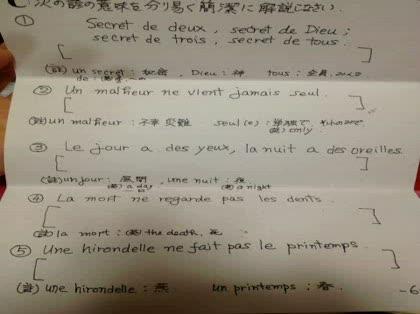 次の諺の意味を分り易く簡潔に解説しなさい.
① Secret de deux, secret de Dieu;
secret de trois, secret de tous.
[ ]
(註) un secret: 秘密, Dieu: 神 tous: 全員,
② Un malheur ne vient jamais seul.
[ ]
(註) un malheur: 不幸 災難 seul(e): 単独で,
(英) only
③ Le jour a des yeux, la nuit a des oreilles.
[ ]
(註) un jour: 昼間, une nuit: 夜
(英) a day (英) a night
④ La mort ne regarde pas les dents.
[ ]
(註) la mort: (英) the death, 死
⑤ Une hirondelle ne fait pas le printemps.
[ ]
(註) une hirondelle: 燕 un printemps: 春.
-6